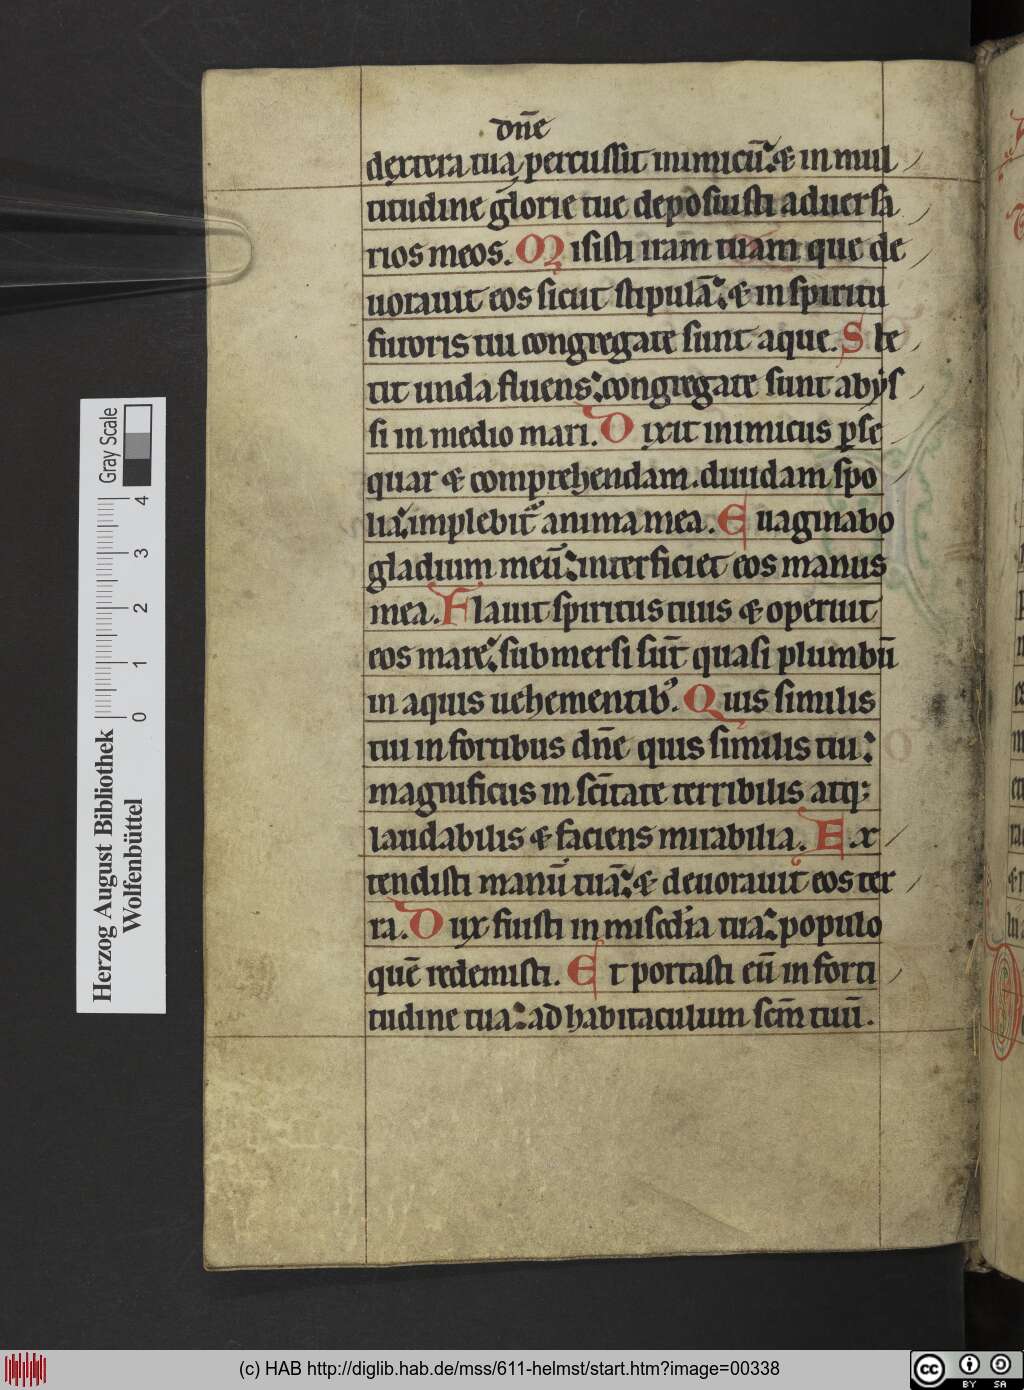 dn̄e
dextera tua percussit inimicū. & in mul
titudine glorie tue deposuisti aduersa
rios meos. Misisti iram tuam que de
uorauit eos sicut stipulā. & in spiritu
furoris tui congregate sunt aque. Ste
tit unda fluens: congregate sunt abys
si in medio mari. Dixit inimicus p̱se
quar & comprehendam. diuidam spo
lia: implebit̄ anima mea. Euaginabo
gladium meū: interficiet eos manus
mea. Flauit spiritus tuus & operuit
eos mare: submersi sūt quasi plumbū
in aquis uehementib⁹. Quis similis
tui in fortibus dn̄e quis similis tui:
magnificus in sc̄itate terribilis atq;
laudabilis & faciens mirabilia. Ex
tendisti manū tuā: & deuorauit eos ter
ra. Dux fuisti in misc̄dia tua: populo
quē redemisti. Et portasti eū in forti
tudine tua: ad habitaculum sc̄m tuū.
Herzog August Bibliothek
Wolfenbüttel
Gray Scale
0 1 2 3 4
(c) HAB http://diglib.hab.de/mss/611-helmst/start.htm?image=00338
cc BY SA